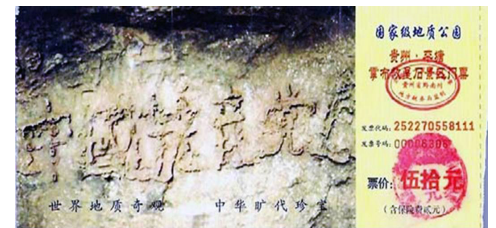 中國共産党亡
世界地质奇观 中华旷代珍宝
国家级地质公园
贵州·平塘
掌布藏字石景区门票
发票代码: 252270558111
发票号码: 00006306
票价: 伍拾元
(含保险费贰元)